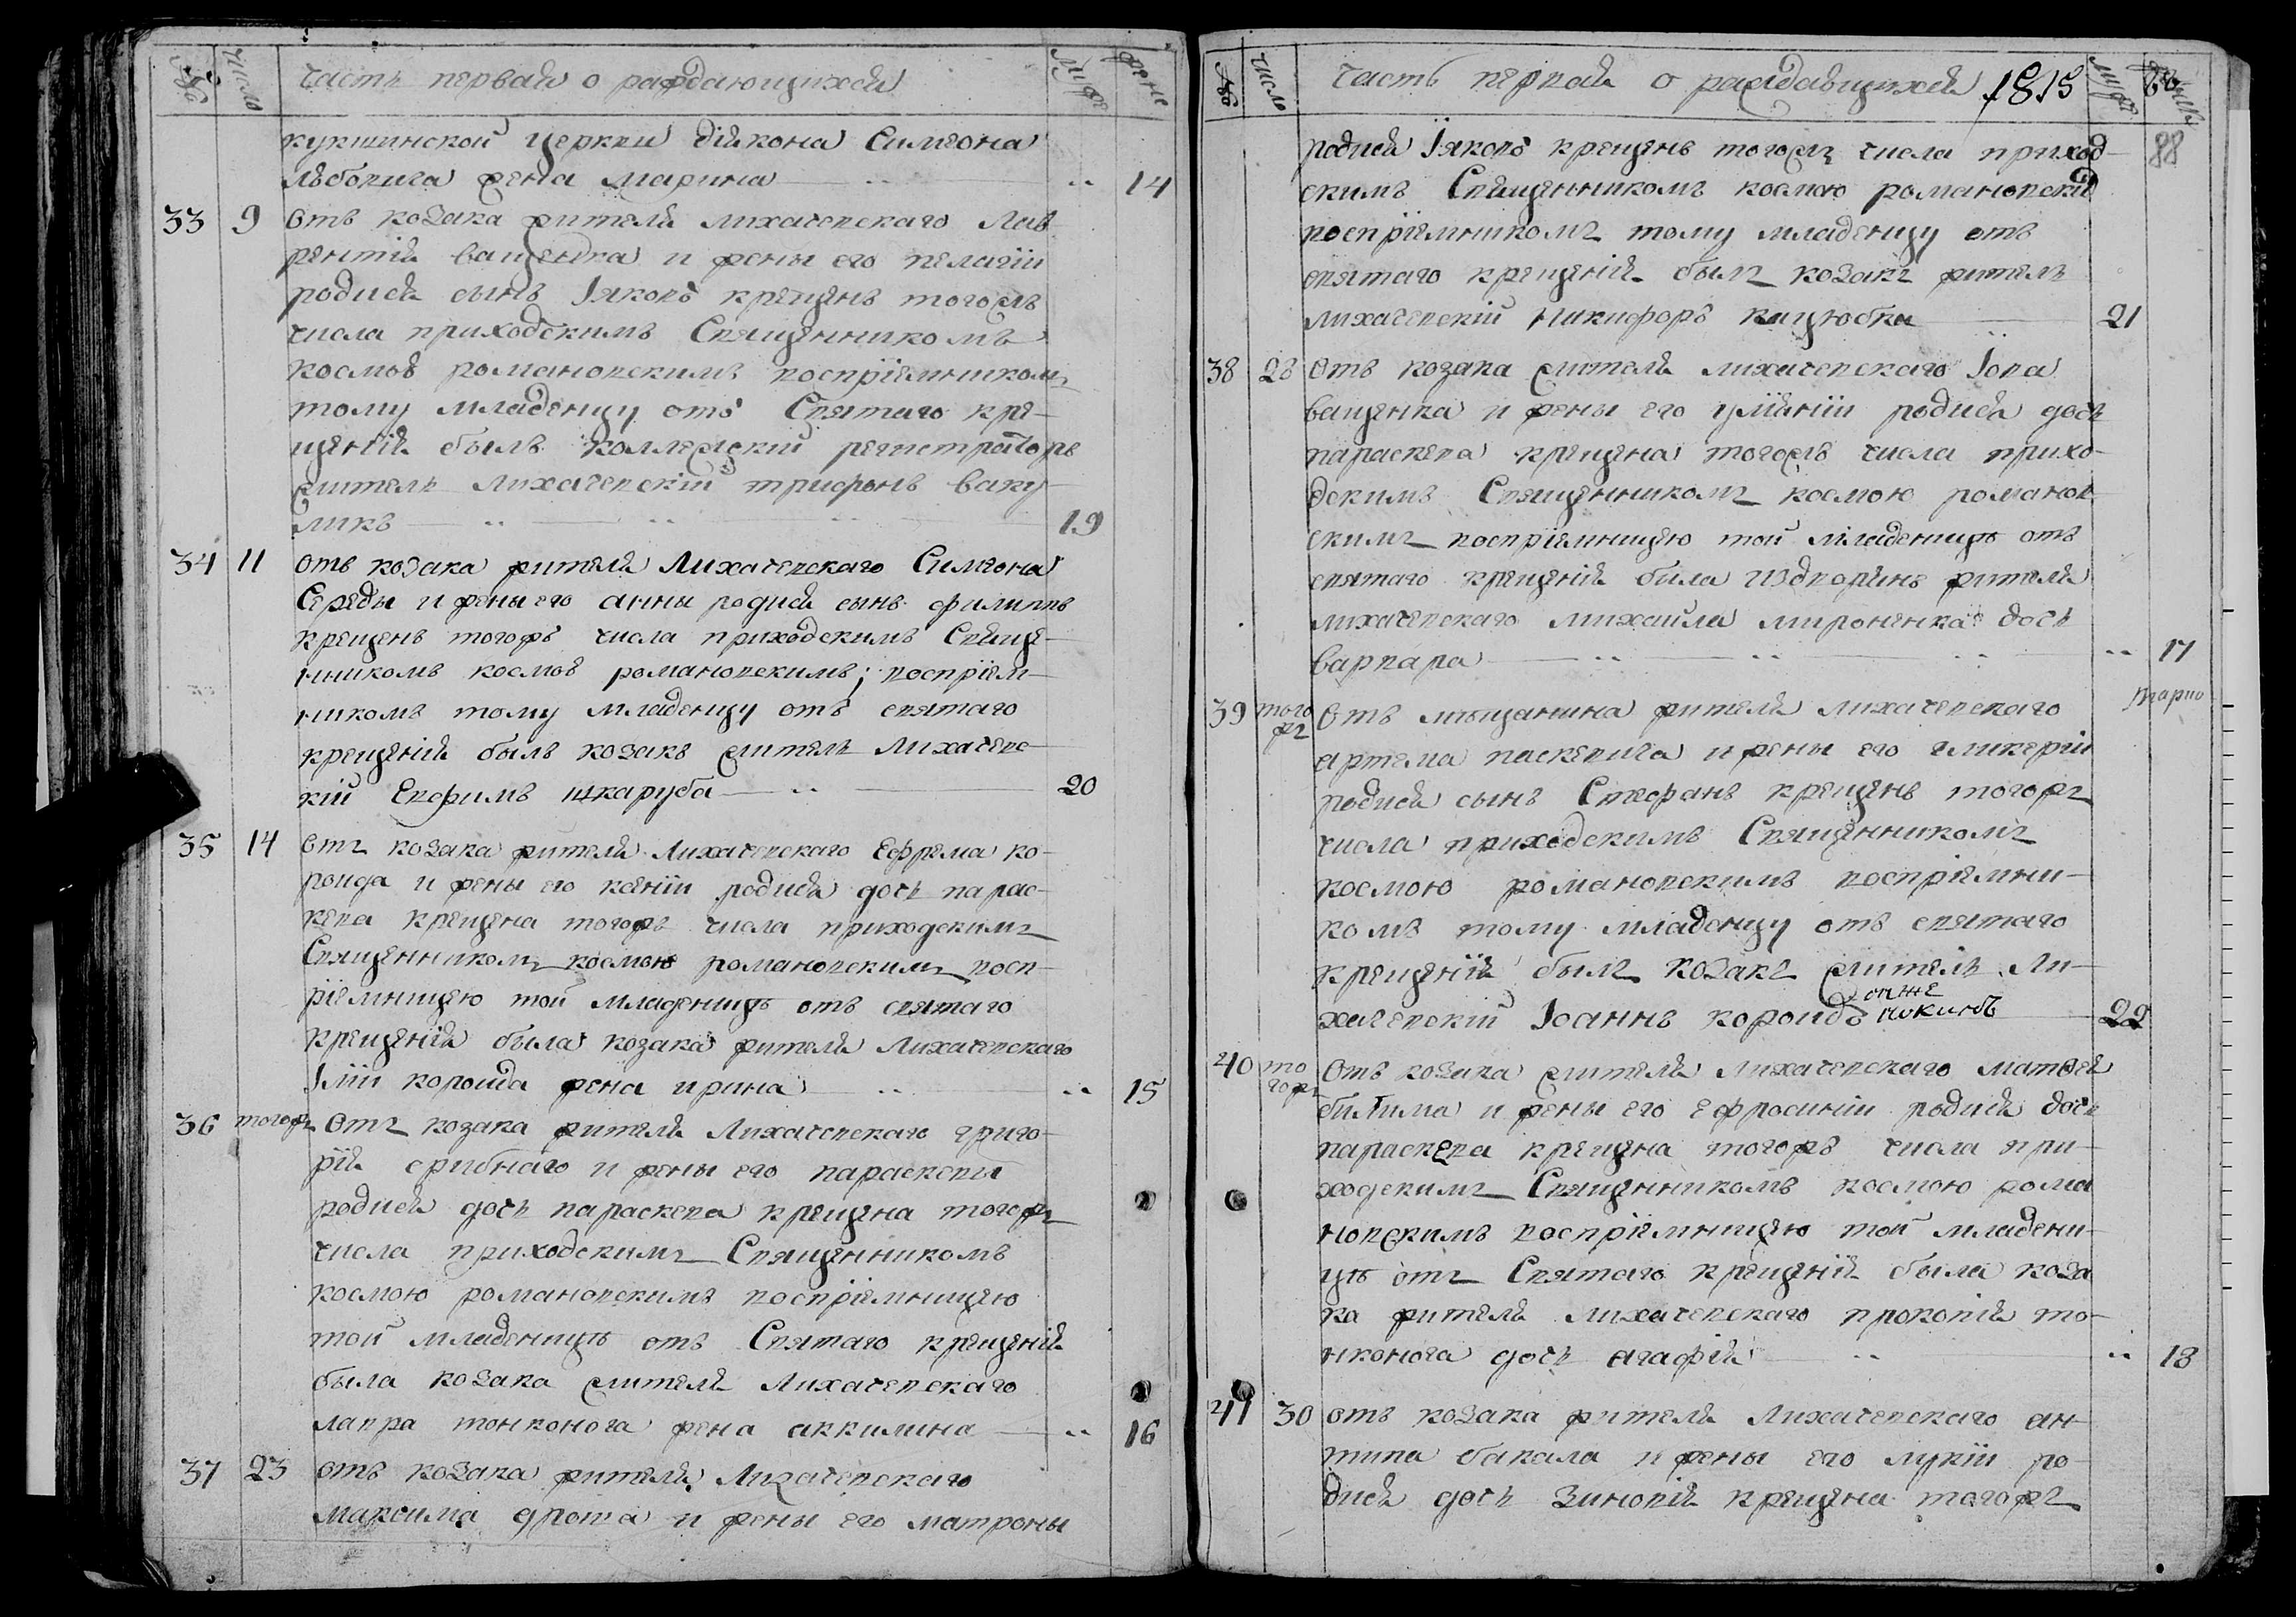 №
число
Часть первая о раждающихся
муж
женс
кукшинской церкви діякона Симеона
Львовича жена Марина 14
33 9 Отъ козака жителя лихачевскаго Лав
рентія Ващенка и жены его Пелагіи
родися сынъ Іяковъ крещенъ тогожъ
числа приходскимъ Священникомъ
Космою Романовскимъ воспріемником
тому младенцу отъ Святаго кре-
щенія былъ коллежскій регистраторъ
житель Лихачевскій ТрифонъВаку
ликъ 19
34 11 Отъ козака жителя Лихачевскаго Симеона
Середы и жены его Анны родися сынъ Филиппъ
крещенъ тогожъ числа приходскимъ Свяще-
нникомъ Космою Романовскимъ; воспріем-
никомъ тому младенцу отъ святаго
крещенія былъ козакъ житель Лихачевс-
кій Евфимъ Шкаруба 20
35 14 Отъ козака жителя Лихачевскаго Ефрема Ко-
роида и жены его Ксеніи родися дочь Парас-
кева крещена тогожъ числа приходскимъ
Священникомъ Космою Романовскимъ восп-
ріемницею той младеницѣ отъ святаго
крещенія была козака жителя Лихачевскаго
Іліи Короида жена Ирина 15
36 тогожъ Отъ козака жителя Лихачевскаго Григо-
рія Срибнаго и жены его Параскевы
родися дочь Параскева крещена тогожъ
числа приходскимъ Священникомъ
Космою Романовскимъ воспріемницею
той младеницѣ отъ Святаго крещенія
была козака жителя Лихачевскаго
Лавра Тонконога жена Аккилина 16
37 23 Отъ козака жителя Лихачевскаго
Максима Дрота и жены его Матроны
№
число
Часть первая о раждающихся 1815
муж
88
родися Іяковъ крещенъ тогожъ числа приход-
скимъ Священникомъ Космою Романовскі
воспріемникомъ тому младенцу отъ
святаго крещенія былъ козакъ житель
лихачевскій Никифоръ Кицюбка 21
38 28 Отъ козака жителя лихачевскаго Іова
Ващенка и жены его Уліяніи родися дочь
Параскева крещена тогожъ числа прихо-
дскимъ Священникомъ Космою Романов
скимъ воспріемницею той младеницѣ отъ
святаго крещенія была жителя
лихачевскаго Михаила Мироненка дочь
Варвара 17
39 того
жъ Отъ мѣщанина жителя лихачевскаго
Артема Паскевича и жены его Гликеріи
родися сынъ Стефанъ крещенъ тогожъ
числа приходскимъ Священникомъ
Космою Романовскимъ воспріемни-
комъ тому младенцу отъ святаго
крещенія былъ козакъ житель Ли-
хачевскій Іоаннъ Короидъ онже 22
40 то
гожъ Отъ козака жителя Лихачевскаго Матѳея
и жены его Ефросиніи родися дочь
Параскева крещена тогожъ числа при-
ходскимъ Священникомъ Космою Рома
новскимъ воспріемницею той младени-
цѣ отъ Святаго крещенія была коза
ка жителя Лихачевскаго Прокопія То-
нконога дочь Агафія 18
41 30 Отъ козака жителя Лихачевскаго Ан-
типа Бакала и жены его Лукіи ро-
дися дочь Зиновія крещена тогожъ